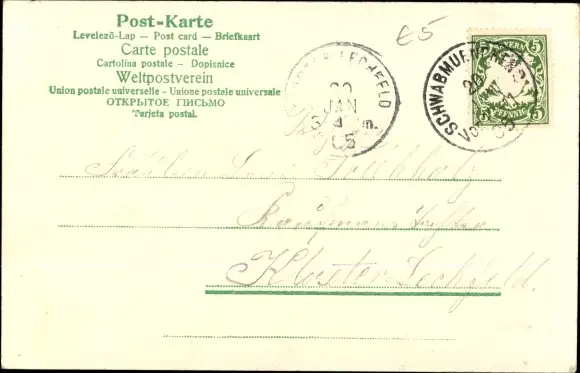 Post-Karte
Levelező-Lap — Post card — Briefkaart
Carte postale
Cartolina postale — Dopisnice
Weltpostverein
Union postale universelle - Unione postale universale
ОТКРЫТОЕ ПИСЬМО
Tarjeta postal.
£5
LECHFELD
20
JAN
05
SCHWABMUENCHEN
BAYERN
5 5
PFENNIG
Fräulein
Kaufmanns
Kloster Lechfeld.